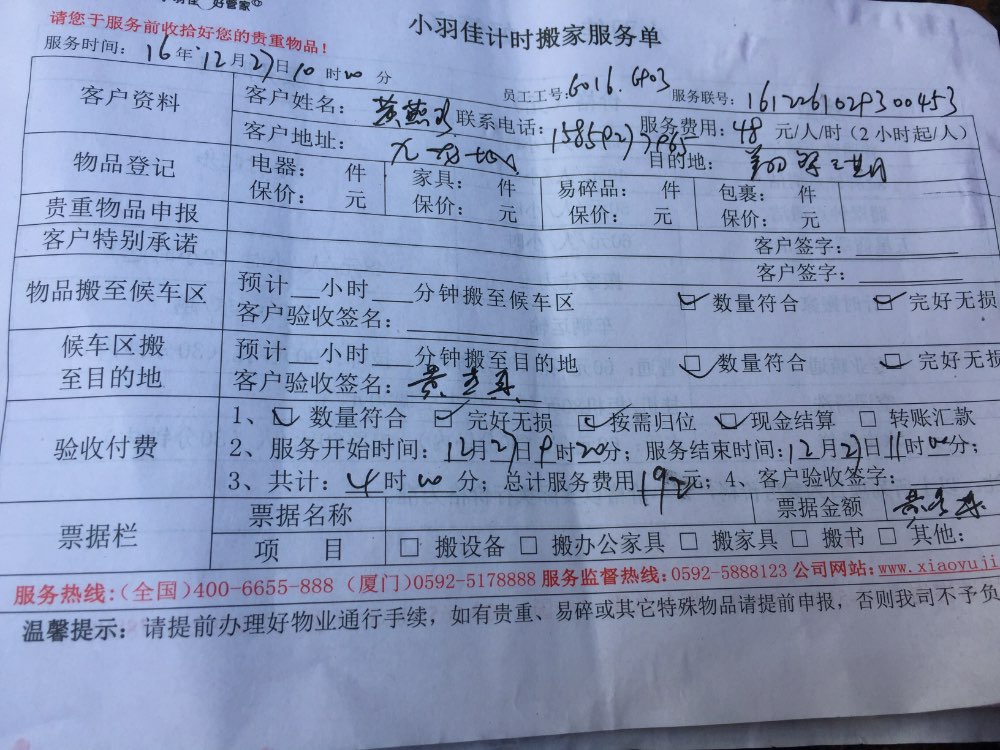 小羽佳 好管家
请您于服务前收拾好您的贵重物品！
小羽佳计时搬家服务单
服务时间：16年12月27日10时00分
员工工号：G016.G903
服务联号：1612261029300453
客户资料
客户姓名：黄燕 联系电话： 服务费用：48元/人/时（2小时起/人）
客户地址： 目的地：
物品登记
电器： 件 家具： 件 易碎品： 件 包裹： 件
保价： 元 保价： 元 保价： 元 保价： 元
贵重物品申报
客户特别承诺 客户签字：
客户签字：
物品搬至候车区
预计__小时___分钟搬至候车区 数量符合 完好无损
客户验收签名：
候车区搬至目的地
预计__小时___分钟搬至目的地 数量符合 完好无损
客户验收签名：
验收付费
1、 数量符合 完好无损 按需归位 现金结算 □ 转账汇款
2、服务开始时间：12月27日9时20分；服务结束时间：12月27日11时00分；
3、共计：4时00分；总计服务费用192元；4、客户验收签字：
票据栏
票据名称 票据金额
项 目 □ 搬设备 □ 搬办公家具 □ 搬家具 □ 搬书 □ 其他：
服务热线：（全国）400-6655-888（厦门）0592-5178888 服务监督热线：0592-5888123 公司网站：www.xiaoyuji
温馨提示：请提前办理好物业通行手续，如有贵重、易碎或其它特殊物品请提前申报，否则我司不予负